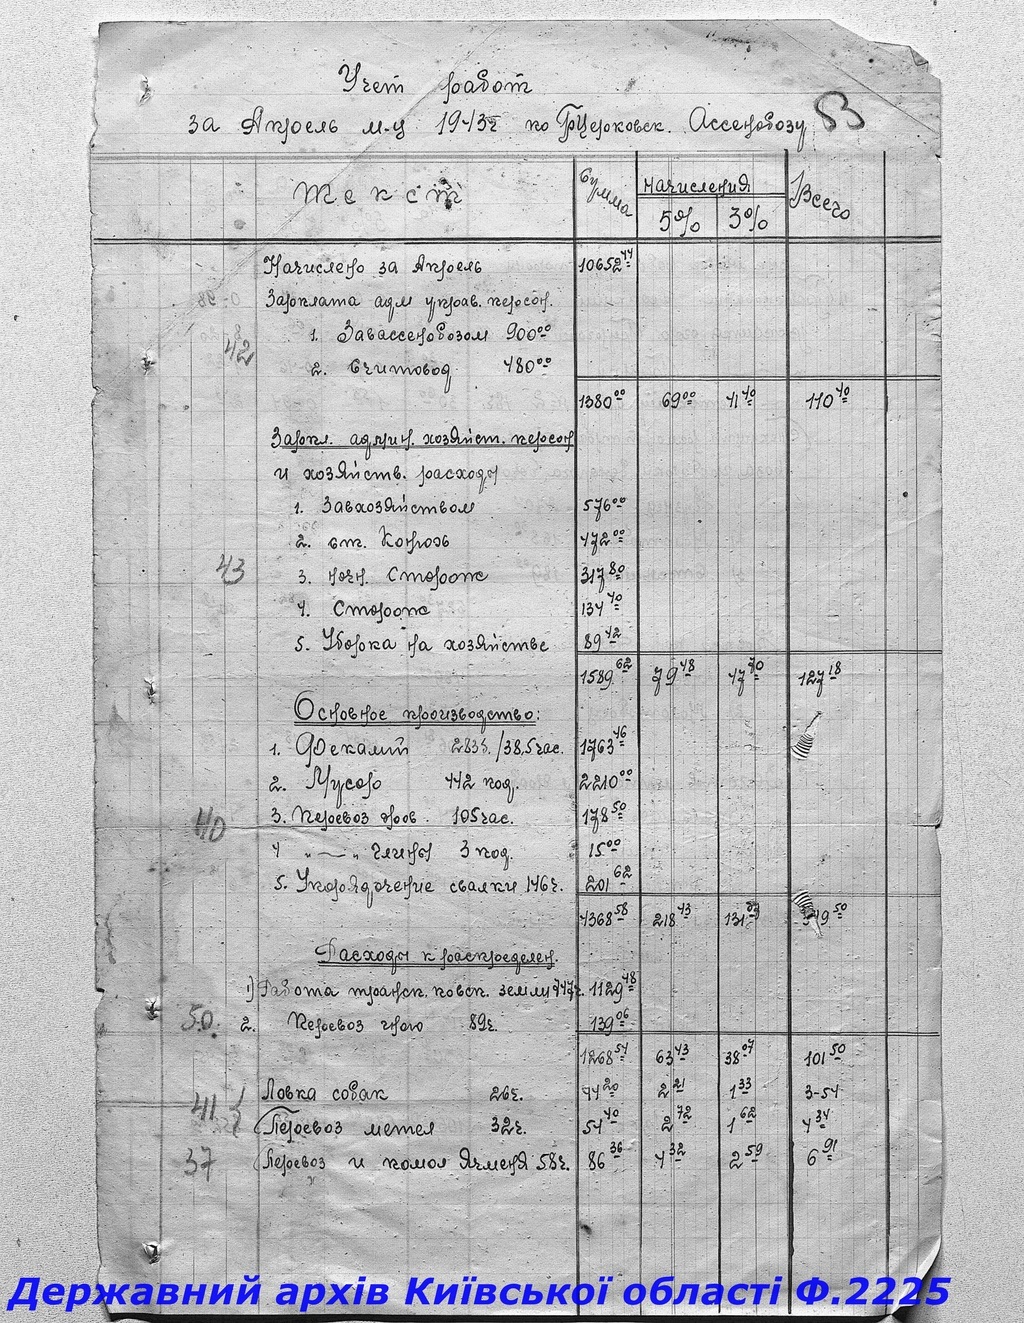 Учет работ
за Апрель м-ц 1943г по БЦерковск. Ассенобозу 53
Текст Сумма начисления Всего
5% 3%
Начислено за Апрель 10652 44
Зарплата адм управ. персон.
1. Завассенобозом 900 00
42
2. Счетовод 480 00
1380 00 69 00 41 40 110 40
Зарпл. админ. хозяйст. персон
и хозяйств. расходы
1. Завхозяйством 576 00
2. ст. Конюх 472 00
43 3. ноч. Сторож 317 80
4. Сторож 134 40
5. Уборка на хозяйстве 89 42
1589 62 79 48 47 70 127 18
Основное производство:
1. Фекалий 283 /38,5 час. 1763 46
2. Мусор 442 под. 2210 00
40 3. Перевоз дров. 105 час. 178 50
4 " — " глины 3 под. 15 00
5. Упорядочение свалки 146г. 201 62
4368 58 218 43 131 349 50
Расходы к распределен.
1) Работа транск. ковск. земли 747г. 1129 48
50. 2. Перевоз гною 89г. 139 06
1268 54 63 43 38 07 101 50
41 { Ловка собак 26г. 44 20 2 21 1 33 3-54
Перевоз метел 32г. 54 40 2 72 1 62 4 34
37 Перевоз и помол Ячменя 58г. 86 36 4 32 2 59 6 91
Державний архів Київської області Ф.2225